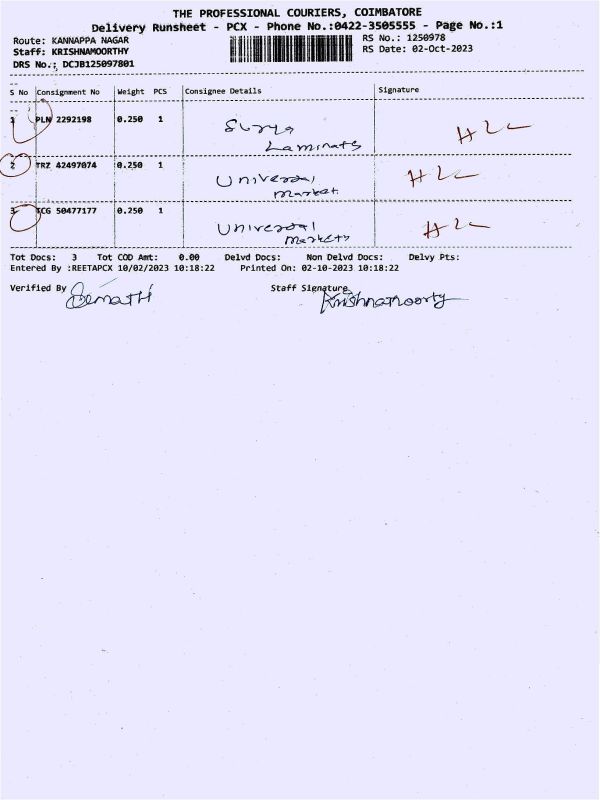 THE PROFESSIONAL COURIERS, COIMBATORE
Delivery Runsheet - PCX - Phone No.:0422-3505555 - Page No.:1
Route: KANNAPPA NAGAR RS No.: 1250978
Staff: KRISHNAMOORTHY RS Date: 02-Oct-2023
DRS No.: DCJB125097801
S No Consignment No Weight PCS Consignee Details Signature
1 PLN 2292198 0.250 1 Surya
Laminats H2L
2 TRZ 42497074 0.250 1 Universal
Market. H2L
3 TCG 50477177 0.250 1 Universal
Markets H2L
Tot Docs: 3 Tot COD Amt: 0.00 Delvd Docs: Non Delvd Docs: Delvy Pts:
Entered By :REETAPCX 10/02/2023 10:18:22 Printed On: 02-10-2023 10:18:22
Verified By Staff Signature
Krishnamoorty